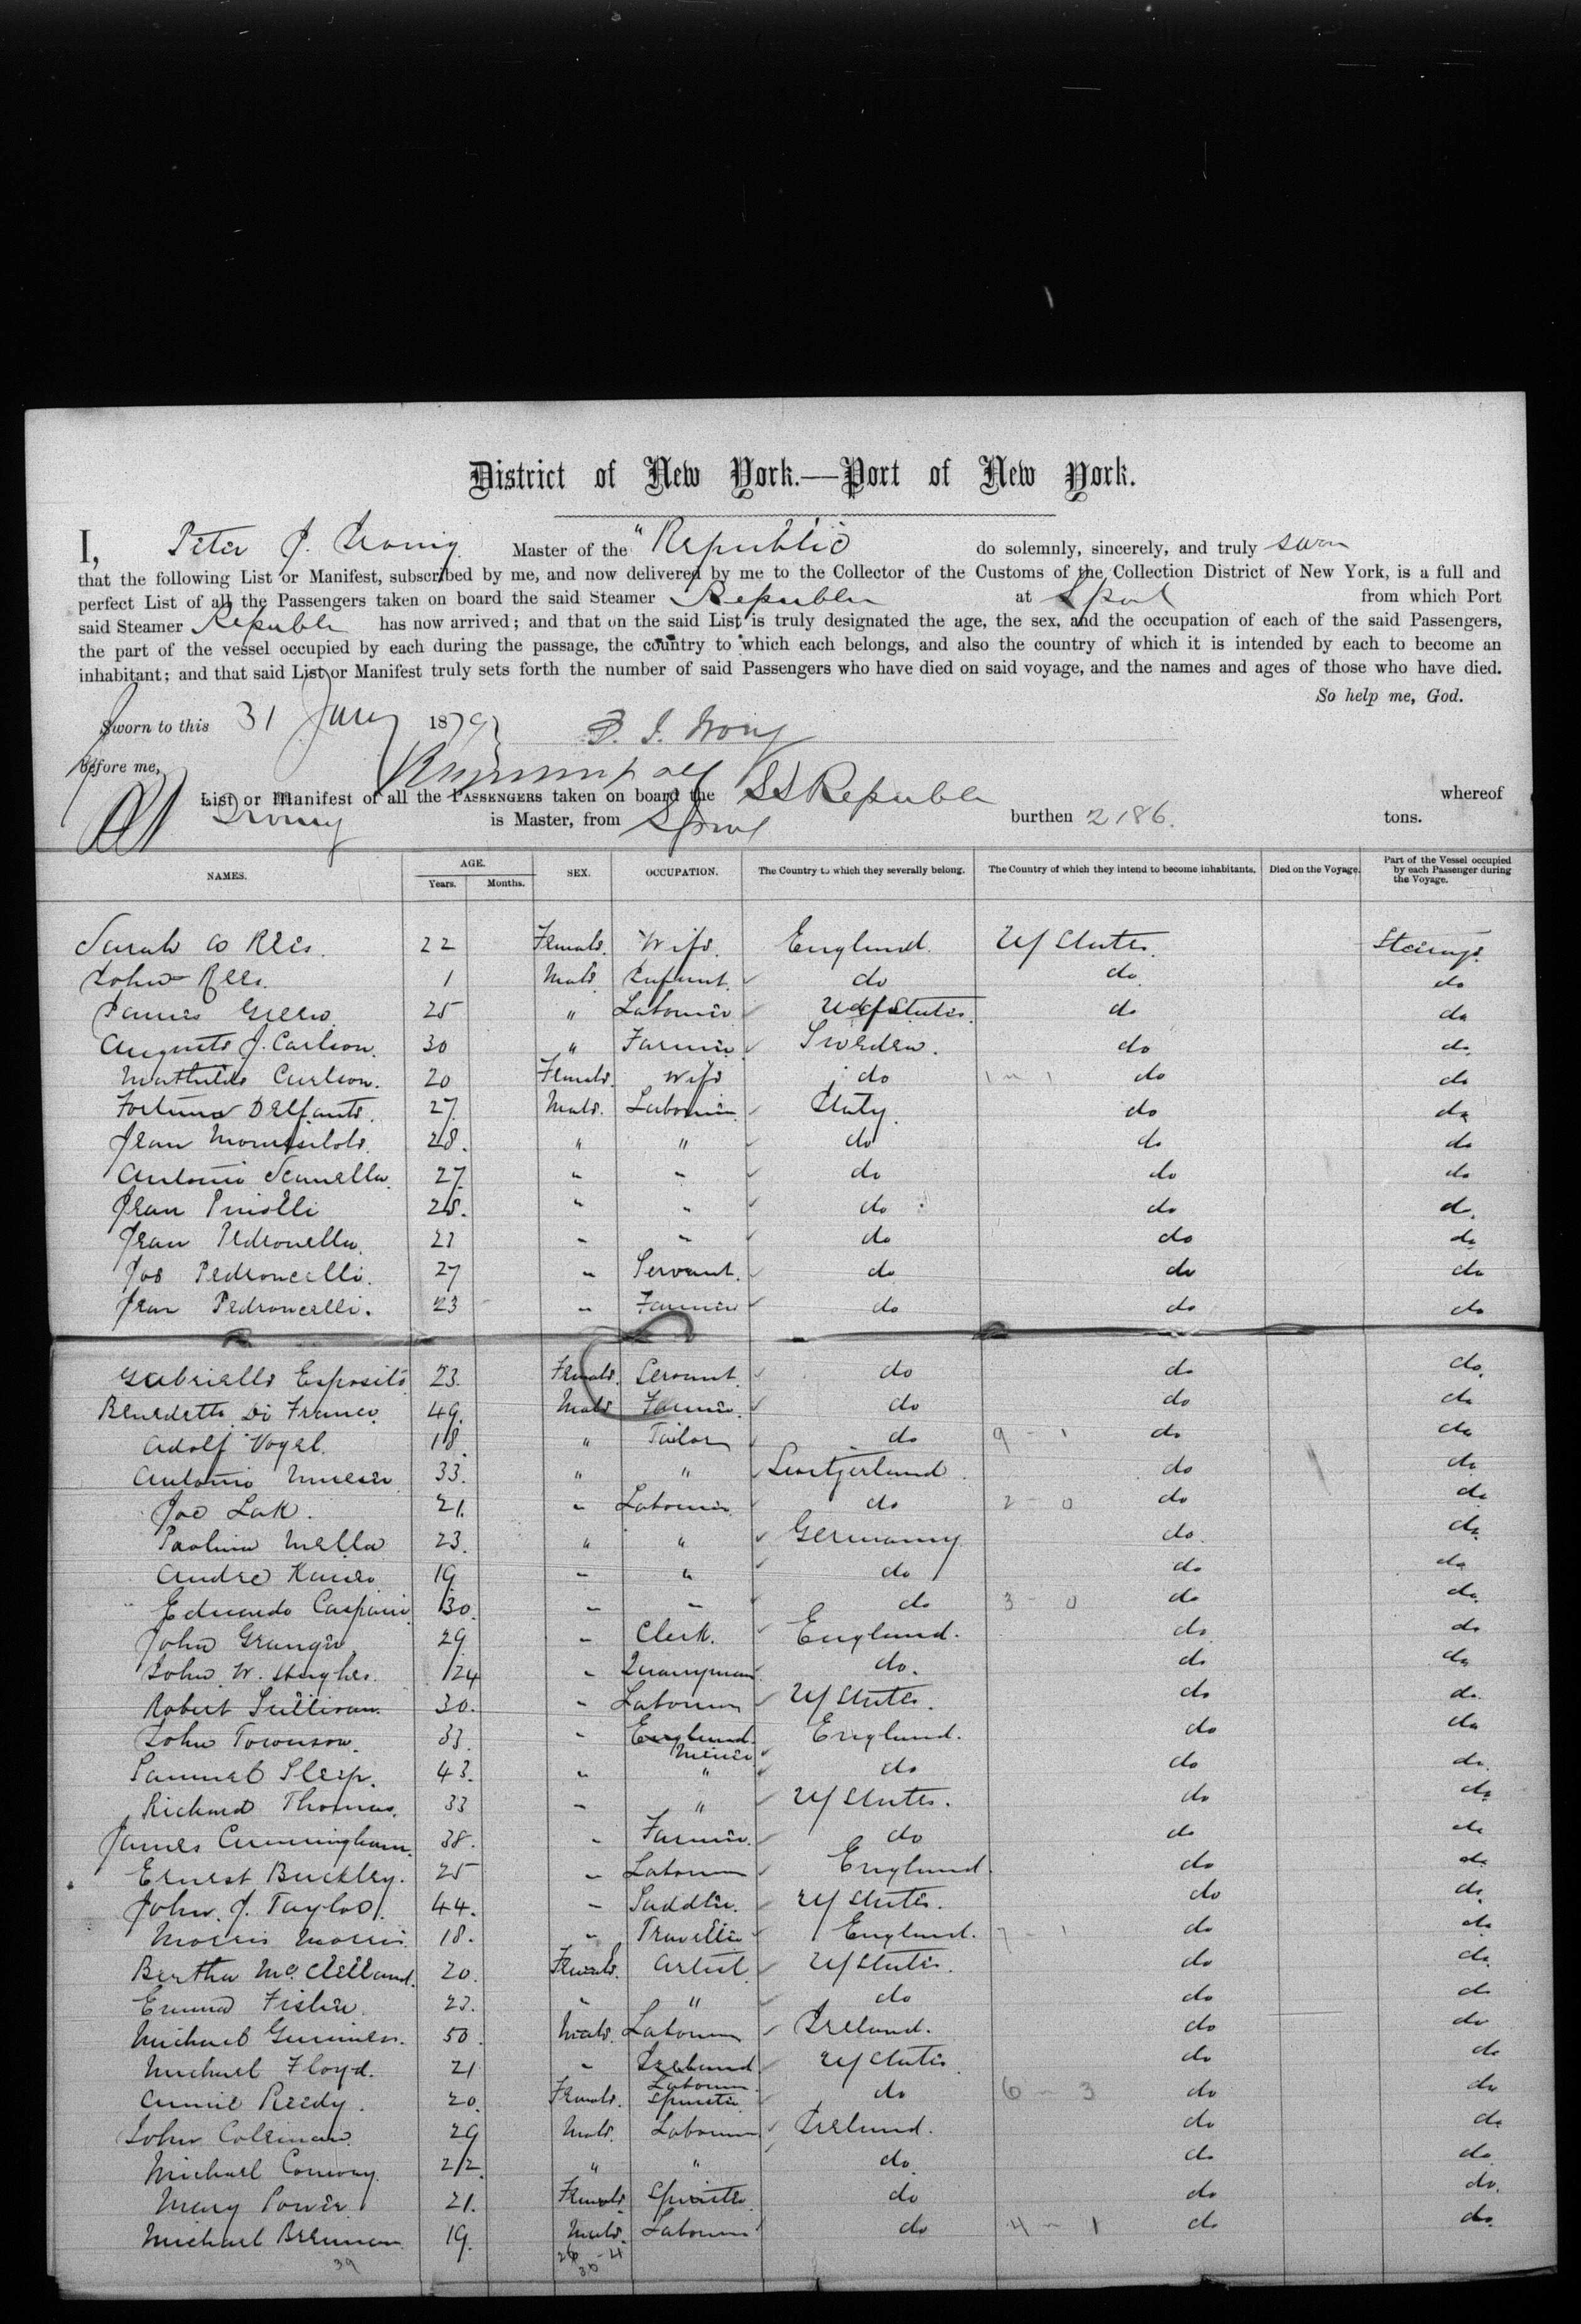 District of New York.—Port of New York.
I, Peter J. Irving Master of the "Republic do solemnly, sincerely, and truly swear
that the following List or Manifest, subscribed by me, and now delivered by me to the Collector of the Customs of the Collection District of New York, is a full and
perfect List of all the Passengers taken on board the said Steamer Republic at Lpool from which Port
said Steamer Republic has now arrived; and that on the said List is truly designated the age, the sex, and the occupation of each of the said Passengers,
the part of the vessel occupied by each during the passage, the country to which each belongs, and also the country of which it is intended by each to become an
inhabitant; and that said List or Manifest truly sets forth the number of said Passengers who have died on said voyage, and the names and ages of those who have died.
So help me, God.
Sworn to this 31 1879
before me,
List or Manifest of all the PASSENGERS taken on board the SS Republic whereof
Irving is Master, from Lpool burthen 2186. tons.
NAMES. AGE. Years. Months. SEX. OCCUPATION. The Country to which they severally belong. The Country of which they intend to become inhabitants. Died on the Voyage. Part of the Vessel occupied by each Passenger during the Voyage.
Sarah Rees. 22 Female. Wife. England. U States. Steerage.
John Rees. 1 Male Infant. do do do
James Green 25 " Labourer U States. do do
Auguste J. Carlson. 30 " Farmer Sweden. do do
Mathilde Carlson. 20 Female. Wife do 1 - 1 do do
Fortuna Delfante. 27 Male. Labourer Italy. do do
Jean 28. " " do do do
Antonio Scanella. 27. " " do do do
Jean Pinolli 28. " " do do do
Jean Pedronella. 23 " " do do do
Jos Pedroncelli. 27 " Servant. do do do
Jean Pedroncelli. 23 " Farmer do do do
Gabrielle Esposito 23. Female. Servant. do do do
Benedetto Di Franco 49. Male Farmer. do do do
Adolf Vogel. 18. " Tailor do 9 - 1 do do
Antonio 33. " " Switzerland. do do
Joe Lak. 21. " Labourer do 2 - 0 do do
Paolina Mella 23. " " Germany do do
Andre 19 " " do do do
Eduardo Caspari 30. " " do 3 - 0 do do
John Granger 29 " Clerk. England. do do
John W. Hughes. 24 " Quarryman do. do do
Robert Sullivan. 30. " Labourer U States. do do
John Townson. 33. " England. Miner England. do do
Samuel Sleep. 43. " " do do do
Richard Thomas. 33 " " U States. do do
James Cunningham. 38. " Farmer. do do do
Ernest Buckley. 25 " Labourer England. do do
John. J. Taylor. 44. " Saddler. U States. do do
Morris Morris. 18. " Traveller England. 7 - 1 do do
Bertha McClelland. 20. Female. Artist U States. do do
Emma Fisher. 23. " " do do do
Michael 50. Male. Labourer Ireland. do do
Michael Floyd. 21 " Ireland Labourer U States do do
Annie Reedy. 20. Female. Spinster do 6 - 3 do do
John Coleman. 29 Male. Labourer Ireland. do do
Michael Conway. 22. " " do do do
Mary Power 21. Female Spinster do do do.
Michael Brennan 19. Male. Labourer do 4 - 1 do do.
39